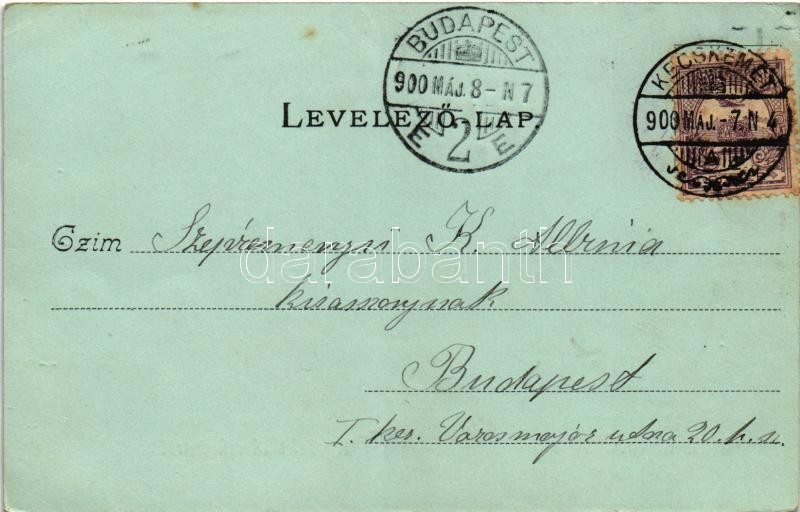 BUDAPEST
900 MÁJ. 8 - N 7
2
KECSKEMÉT
900 MÁJ. - 7 N 4
LEVELEZŐ-LAP.
Czim Szepreményi K. Albinia
kisasszonynak
Budapest
I. ker. Városmajor utca 20. h. sz.
darabanth